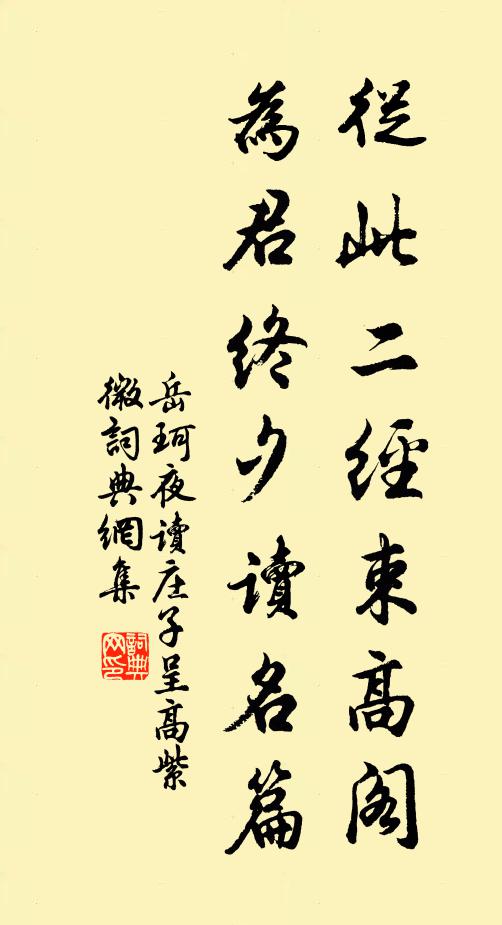 從此二經束高阁
為君终夕讀名篇
岳珂夜讀庄子呈高紫
微詞典網集
詞典網印